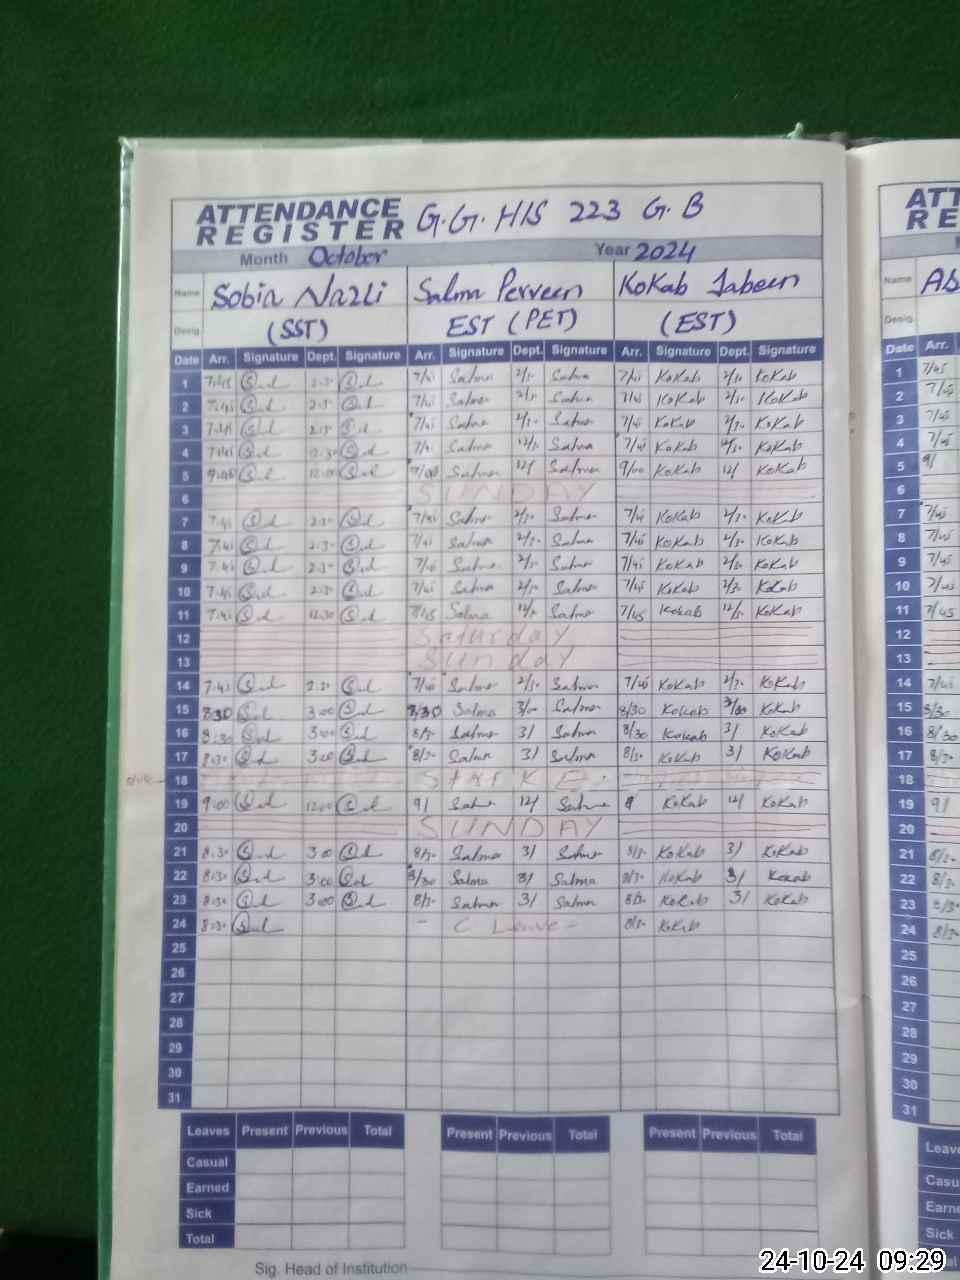 ATTENDANCE
REGISTER
G.G. H/S 223 G.B
Month October Year 2024
Name Sobia Nazli Salma Perveen KoKab Jabeen
Desig (SST) EST (PET) (EST)
Date Arr. Signature Dept. Signature Arr. Signature Dept. Signature Arr. Signature Dept. Signature
1 7/45 Salma 2/30 Salma 7/45 KoKab 2/30 KoKab
2 7/45 Salma 2/30 Salma 7/45 KoKab 2/30 KoKab
3 7/45 Salma 2/30 Salma 7/45 KoKab 2/30 KoKab
4 7/45 Salma Salma 7/45 KoKab KoKab
5 9:00 12:00 Salma 12/ Salma 9/00 KoKab 12/ KoKab
6 SUNDAY
7 7:45 2:30 7/45 Salma 2/30 Salma 7/45 KoKab 2/30 KoKab
8 7:45 2:30 7/45 Salma 2/30 Salma 7/45 KoKab 2/30 KoKab
9 7:45 2:30 7/45 Salma 2/30 Salma 7/45 KoKab 2/30 KoKab
10 7:45 2:30 7/45 Salma 2/30 Salma 7/45 KoKab 2/30 KoKab
11 7:45 12:30 7/45 Salma Salma 7/45 KoKab KoKab
12 Saturday
13 Sunday
14 7:45 2:30 7/45 Salma 2/30 Salma 7/45 KoKab 2/30 KoKab
15 8:30 3:00 8/30 Salma 3/00 Salma 8/30 KoKab 3/00 KoKab
16 8:30 3:00 8/30 Salma 3/ Salma 8/30 KoKab 3/ KoKab
17 8:30 3:00 8/30 Salma 3/ Salma 8/30 KoKab 3/ KoKab
18
19 9:00 12:00 9/ Salma 12/ Salma 9 KoKab 12/ KoKab
20 SUNDAY
21 8:30 3:00 8/30 Salma 3/ Salma 8/30 KoKab 3/ KoKab
22 8:30 3:00 8/30 Salma 3/ Salma 8/30 KoKab 3/ KoKab
23 8:30 3:00 8/30 Salma 3/ Salma 8/30 KoKab 3/ KoKab
24 8:30 - C Leave - 8/30 KoKab
25
26
27
28
29
30
31
Leaves Present Previous Total Present Previous Total Present Previous Total
Casual
Earned
Sick
Total
Sig. Head of Institution
Name
Desig
Date Arr.
1 7/45
2 7/45
3 7/45
4 7/45
5 9/
6
7 7/45
8 7/45
9 7/45
10 7/45
11 7/45
12
13
14 7/45
15 8/30
16 8/30
17 8/30
18
19 9/
20
21 8/30
22 8/30
23 8/30
24 8/30
25
26
27
28
29
30
31
24-10-24 09:29